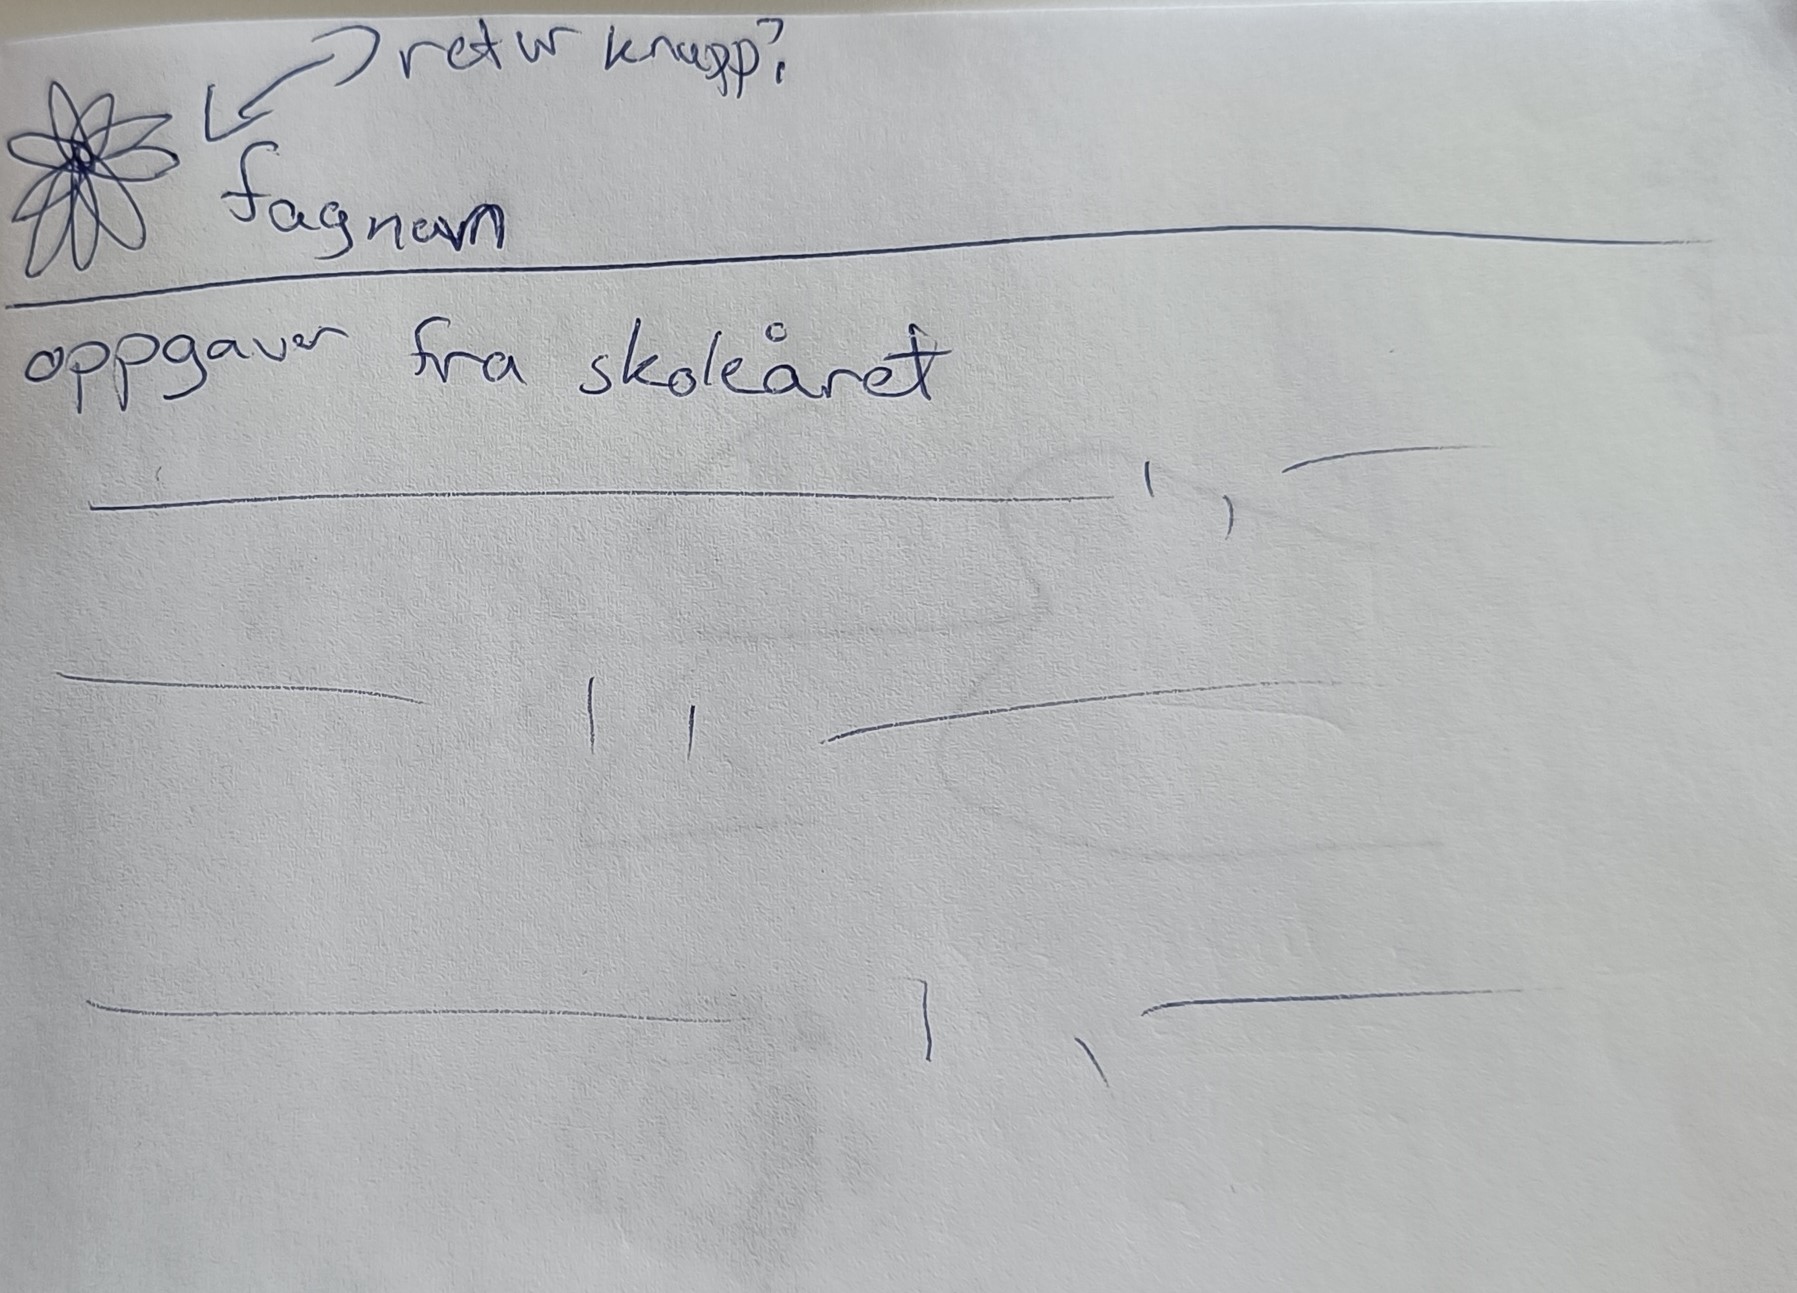 retur knapp?
fagnavn
oppgaver fra skoleåret